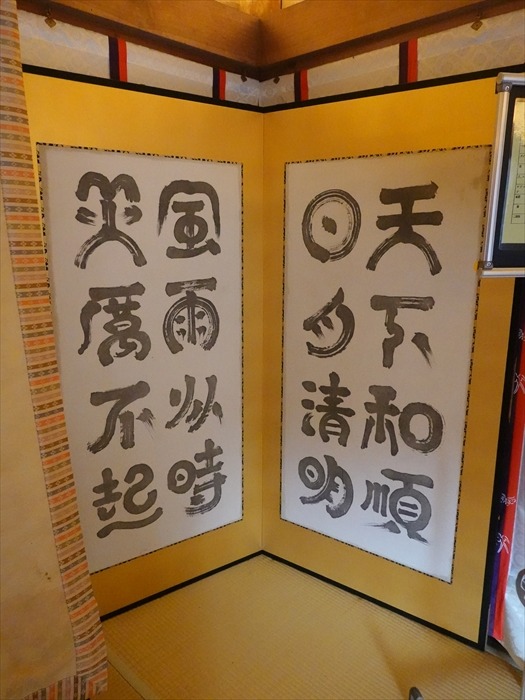 天下和順
日月清明
風雨以時
災厲不起